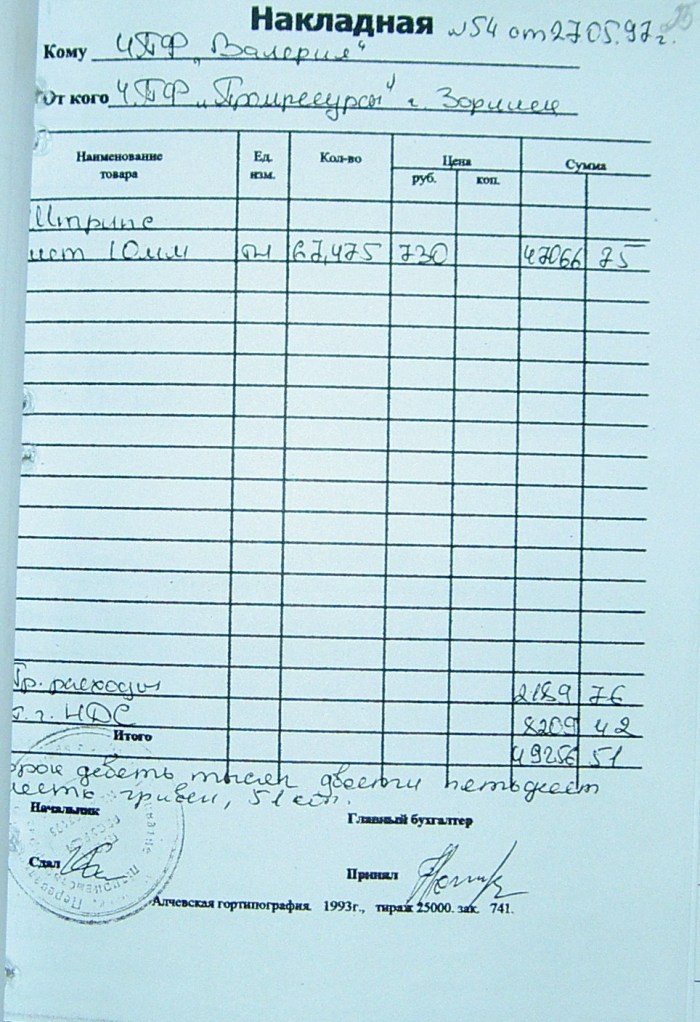 Накладная №54 от 27.05.97г.
Кому ЧПФ „Валерия"
От кого Ч.ПФ „Промресурсы" г. Зоринск
Наименование товара Ед. изм. Кол-во Цена Сумма
руб. коп.
Штрипс
лист 10мм тн 67,475 730 47066 75
Тр. расходы 2189 76
т.ч. НДС 8209 42
Итого 49256 51
сорок девять тысяч двести пятьдесят
шесть гривен, 51 коп.
Начальник Главный бухгалтер
Сдал Принял
Алчевская гортипография. 1993г., тираж 25000. зак. 741.